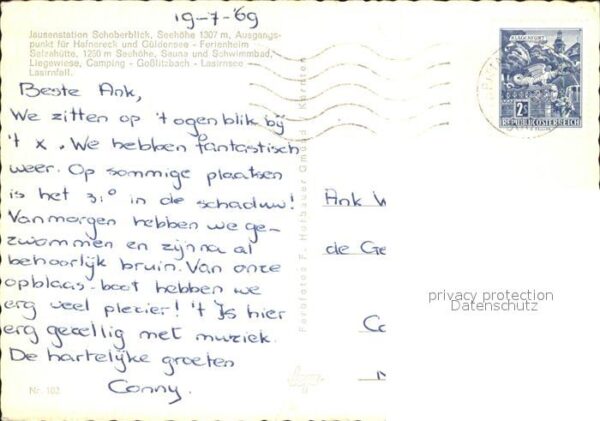 19-7-'69
Jausenstation Schoberblick, Seehöhe 1307 m, Ausgangs-
punkt für Hafnereck und Güldersee - Ferienheim
Salzhütte, 1250 m Seehöhe, Sauna und Schwimmbad,
Liegewiese, Camping - Goßlitzbach - Lasirnsee
Lasirnfall.
Beste Ank,
We zitten op 't ogenblik bij
't x. We hebben fantastisch
weer. Op sommige plaatsen
is het 31° in de schaduw!
Vanmorgen hebben we ge-
zwommen en zijn na al
behoorlijk bruin. Van onze
opblaas-boot hebben we
erg veel plezier! 't Is hier
erg gezellig met muziek.
De hartelijke groeten
Conny.
Nr. 102
Farbfotos F. Hutbauer Gmünd Kärnten
KLAGENFURT
2S
REPUBLIK ÖSTERREICH
Ank W
de Ge
privacy protection
Datenschutz